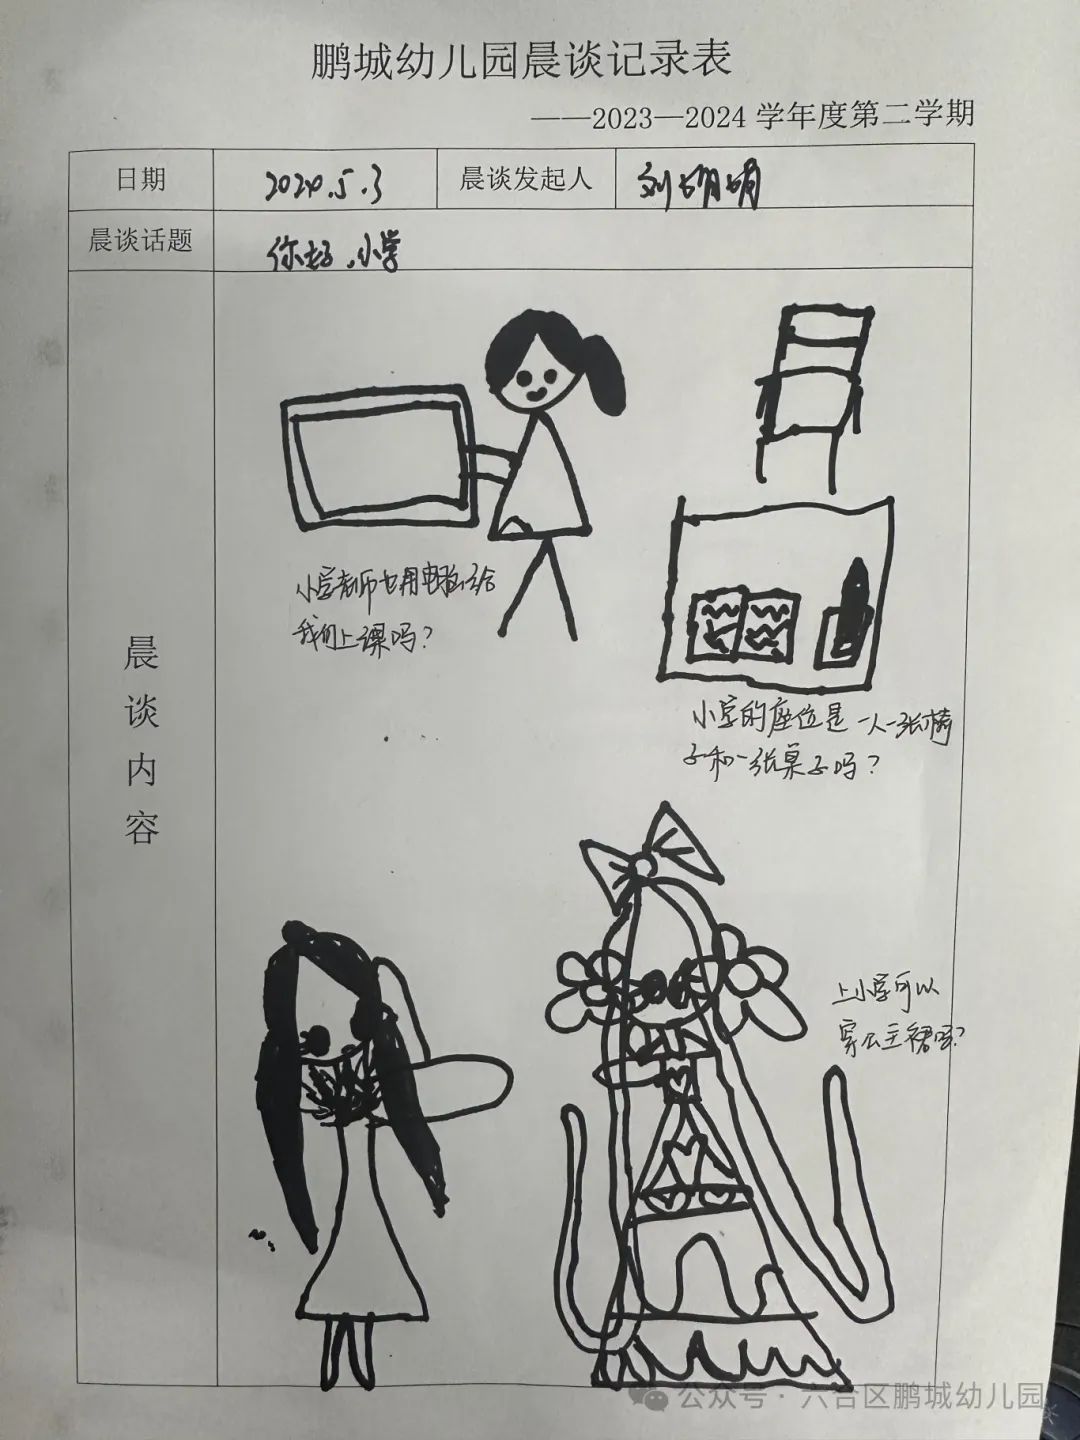 鹏城幼儿园晨谈记录表
——2023—2024 学年度第二学期
日期
2024.5.3
晨谈发起人
晨谈话题
你好,小学
晨谈内容
小学老师也用电脑给
我们上课吗?
小学的座位是一人一张椅
子和一张桌子吗?
上小学可以
穿公主裙吗?
公众号·六合区鹏城幼儿园